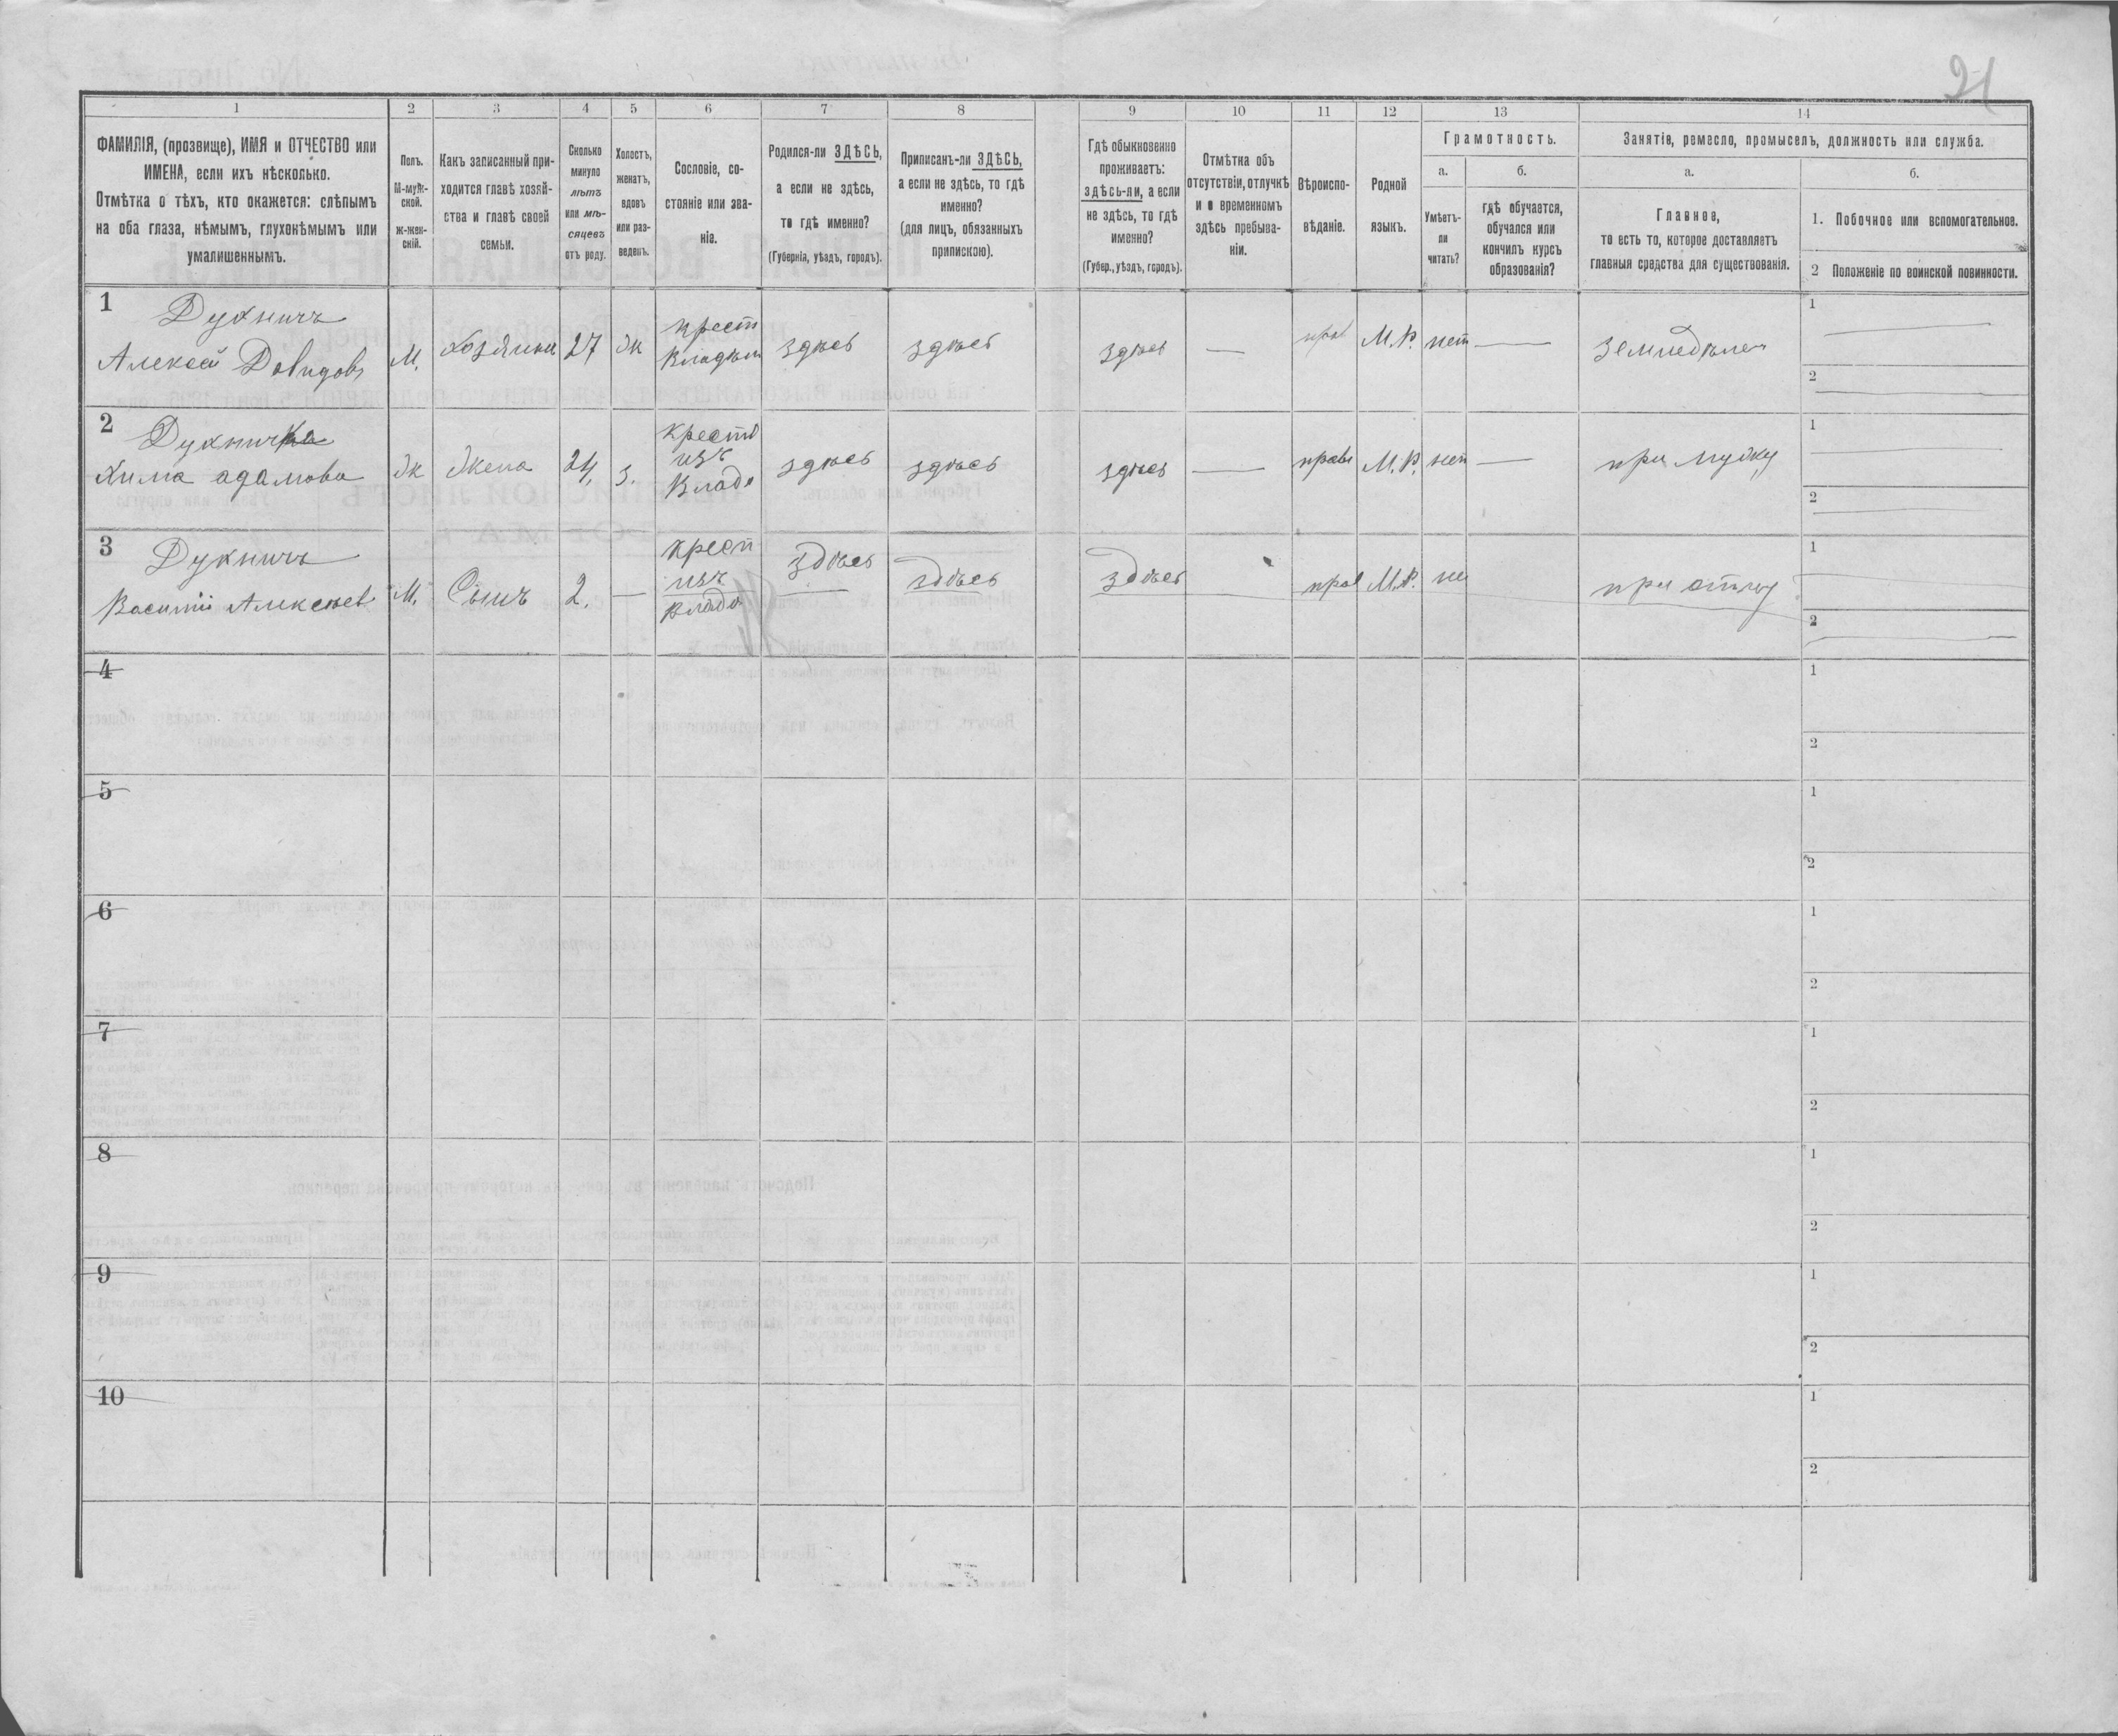 21
1 2 3 4 5 6 7 8 9 10 11 12 13 14
ФАМИЛІЯ, (прозвище), ИМЯ и ОТЧЕСТВО или
ИМЕНА, если ихъ нѣсколько.
Отмѣтка о тѣхъ, кто окажется: слѣпымъ
на оба глаза, нѣмымъ, глухонѣмымъ или
умалишеннымъ.
Полъ.
М-муж-
ской.
ж-жен-
скій.
Какъ записанный при-
ходится главѣ хозяй-
ства и главѣ своей
семьи.
Сколько
минуло
лѣтъ
или мѣ-
сяцевъ
отъ роду.
Холостъ,
женатъ,
вдовъ
или раз-
веденъ.
Сословіе, со-
стояніе или зва-
ніе.
Родился-ли ЗДѢСЬ,
а если не здѣсь,
то гдѣ именно?
(Губернія, уѣздъ, городъ).
Приписанъ-ли ЗДѢСЬ,
а если не здѣсь, то гдѣ
именно?
(для лицъ, обязанныхъ
припискою).
Гдѣ обыкновенно
проживаетъ:
здѣсь-ли, а если
не здѣсь, то гдѣ
именно?
(Губер., уѣздъ, городъ).
Отмѣтка объ
отсутствіи, отлучкѣ
и о временномъ
здѣсь пребыва-
ніи.
Вѣроиспо-
вѣданіе.
Родной
языкъ.
Грамотность.
а.
Умѣетъ-
ли
читать?
б.
гдѣ обучается,
обучался или
кончилъ курсъ
образованія?
Занятіе, ремесло, промыселъ, должность или служба.
а.
Главное,
то есть то, которое доставляетъ
главныя средства для существованія.
б.
1. Побочное или вспомогательное.
2 Положеніе по воинской повинности.
1
Духничъ
Алексей Довидовъ
М.
хозяинъ
27
Ж
крест
Владѣл
здѣсь
здѣсь
здѣсь
—
прав
М. Р.
нет
—
земледѣлец
1
2
2
Духничка
Хима адамова
Ж
Жена
24
з.
крест
изъ
Влад
здѣсь
здѣсь
здѣсь
—
прав
М. Р.
нет
—
при мужу
1
2
3
Духничъ
Василій Алексѣев
М.
Сынъ
2.
—
крест
изъ
Влад
здѣсь
здѣсь
здѣсь
прав
М. Р.
не
при отцу
1
2
4
1
2
5
1
2
6
1
2
7
1
2
8
1
2
9
1
2
10
1
2